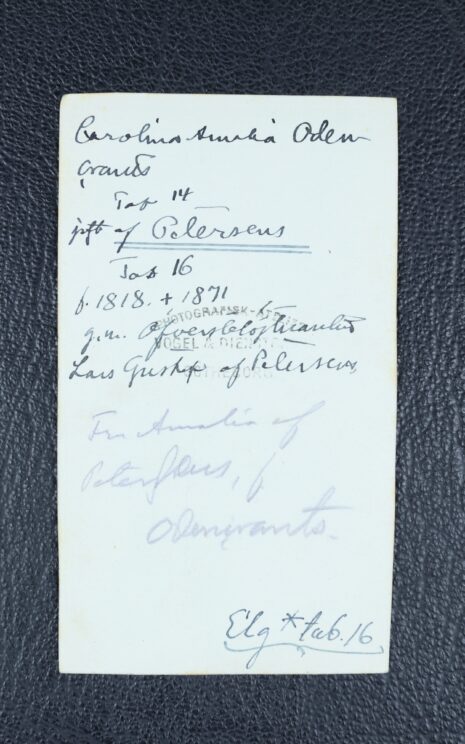 Carolina Amalia Oden
crants
Tab 14
gift af Petersens
Tab 16
f. 1818. + 1871
g.m. Öfverstelöjtnanten
Lars Gustaf af Petersens
PHOTOGRAFISK-ATELIER
VOGEL &
GÖTHEBORG
Fru Amalia af
Petersens, f
Odencrants.
Elg * tab. 16